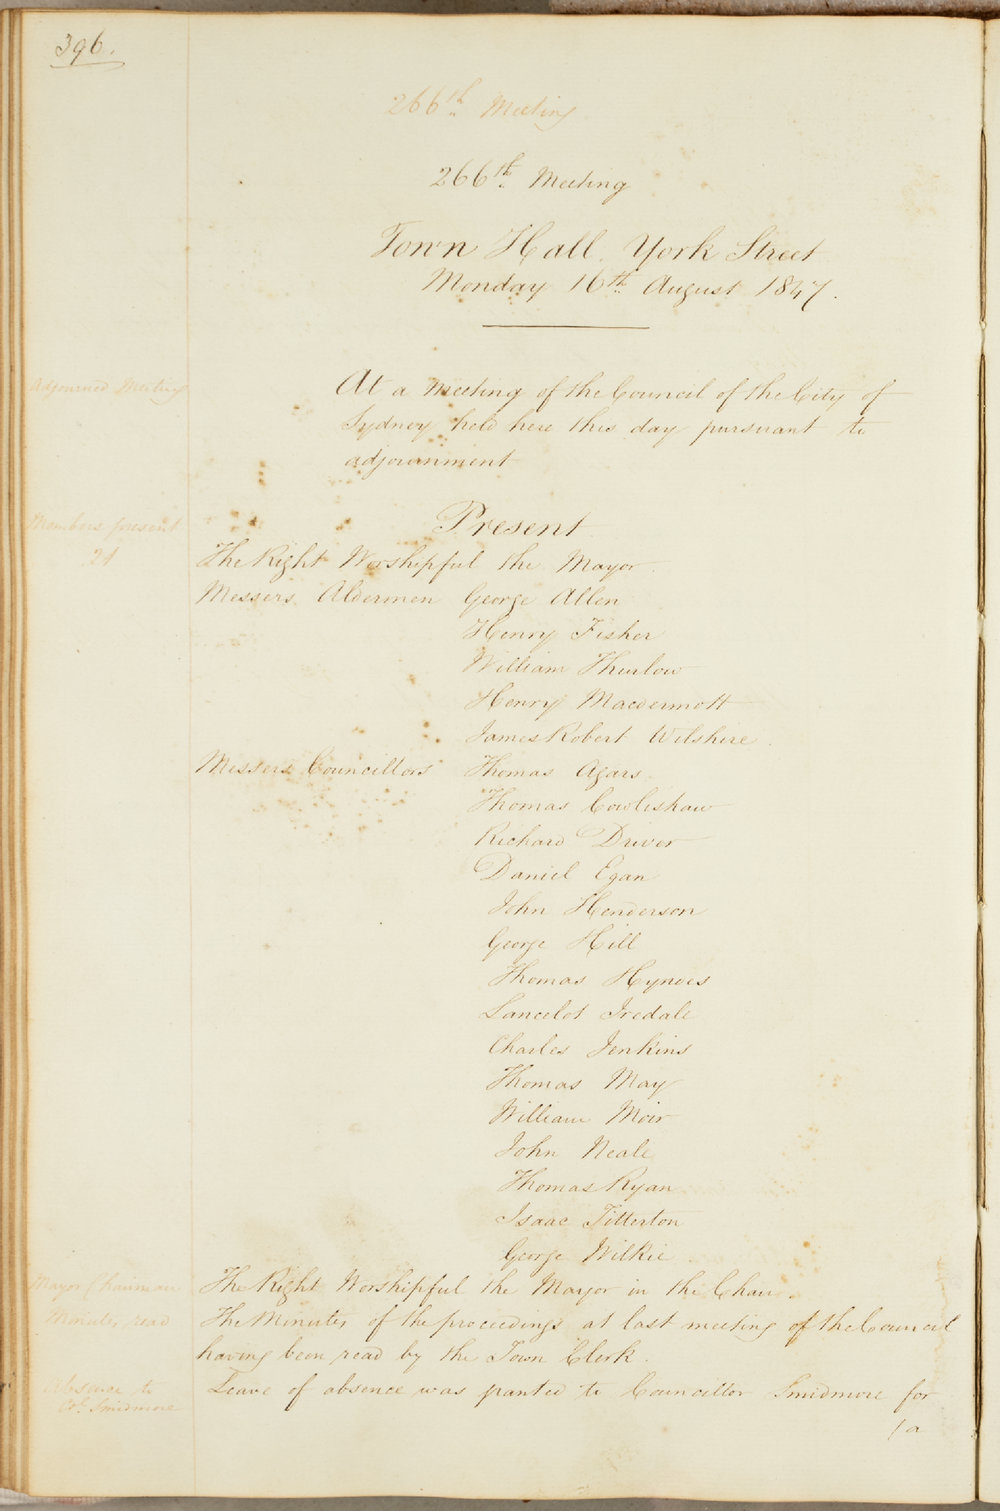 396.
266th Meeting
266th Meeting
Town Hall. York Street
Monday 16th August 1847.
Adjourned Meeting
At a meeting of the Council of the City of
Sydney held here this day pursuant to
adjournment
Members present
21
Present
The Right Worshipful the Mayor
Messers Aldermen George Allen
Henry Fisher
William Thurlow
Henry Macdermott
James Robert Wilshire
Messers Councillors Thomas Agars
Thomas Cowlishaw
Richard Driver
Daniel Egan
John Henderson
George Hill
Thomas Hyndes
Lancelot Iredale
Charles Jenkins
Thomas May
William Moir
John Neale
Thomas Ryan
Isaac Titterton
George Wilkie
Mayor Chairman
The Right Worshipful the Mayor in the Chair.
Minutes read
The Minutes of the proceedings at last meeting of the Council
having been read by the Town Clerk.
Absence to
Cr. Smidmore
Leave of absence was granted to Councillor Smidmore for
/a